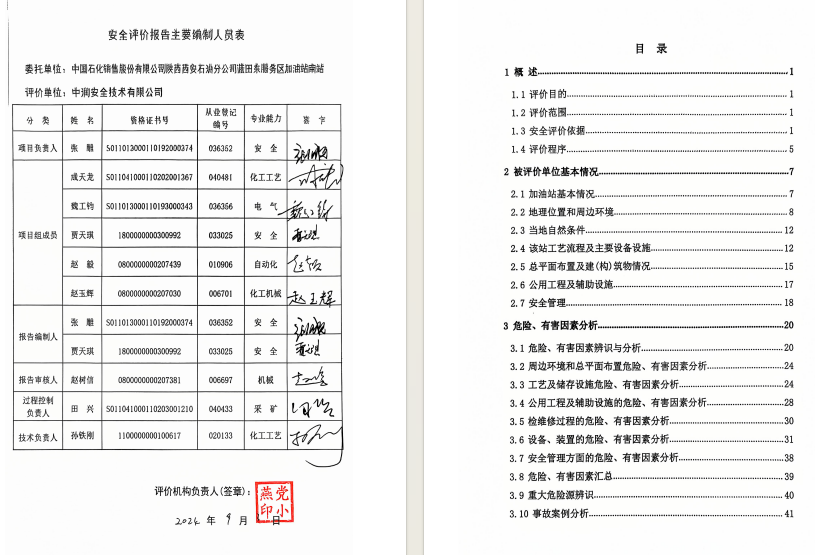 安全评价报告主要编制人员表
委托单位：中国石化销售股份有限公司陕西西安石油分公司蓝田东服务区加油站南站
评价单位：中润安全技术有限公司
分 类 姓 名 资格证书号 从业登记编号 专业能力 签 字
项目负责人 张 雕 S011013000110192000374 036352 安 全
项目组成员 成天龙 S011041000110202001367 040481 化工工艺
魏工钧 S011013000110193000343 036356 电 气
贾天琪 1800000000300992 033025 安 全
赵 毅 0800000000207439 010906 自动化
赵玉辉 0800000000207030 006701 化工机械 赵玉辉
报告编制人 张 雕 S011013000110192000374 036352 安 全
贾天琪 1800000000300992 033025 安 全
报告审核人 赵树信 0800000000207381 006697 机械
过程控制负责人 田 兴 S011041000110203001210 040433 采 矿
技术负责人 孙铁刚 1100000000100617 020133 化工工艺
评价机构负责人(签章)：
燕党印小
2024 年 9 月 日
目 录
1 概 述 1
1.1 评价目的 1
1.2 评价范围 1
1.3 安全评价依据 1
1.4 评价程序 5
2 被评价单位基本情况 7
2.1 加油站基本情况 7
2.2 地理位置和周边环境 8
2.3 当地自然条件 12
2.4 该站工艺流程及主要设备设施 12
2.5 总平面布置及建(构)筑物情况 15
2.6 公用工程及辅助设施 17
2.7 安全管理 18
3 危险、有害因素分析 20
3.1 危险、有害因素辨识与分析 20
3.2 周边环境和总平面布置危险、有害因素分析 24
3.3 工艺及储存设施危险、有害因素分析 24
3.4 公用工程及辅助设施的危险、有害因素分析 28
3.5 检维修过程的危险、有害因素分析 30
3.6 设备、装置的危险、有害因素分析 31
3.7 安全管理方面的危险、有害因素分析 38
3.8 危险、有害因素汇总 39
3.9 重大危险源辨识 40
3.10 事故案例分析 41